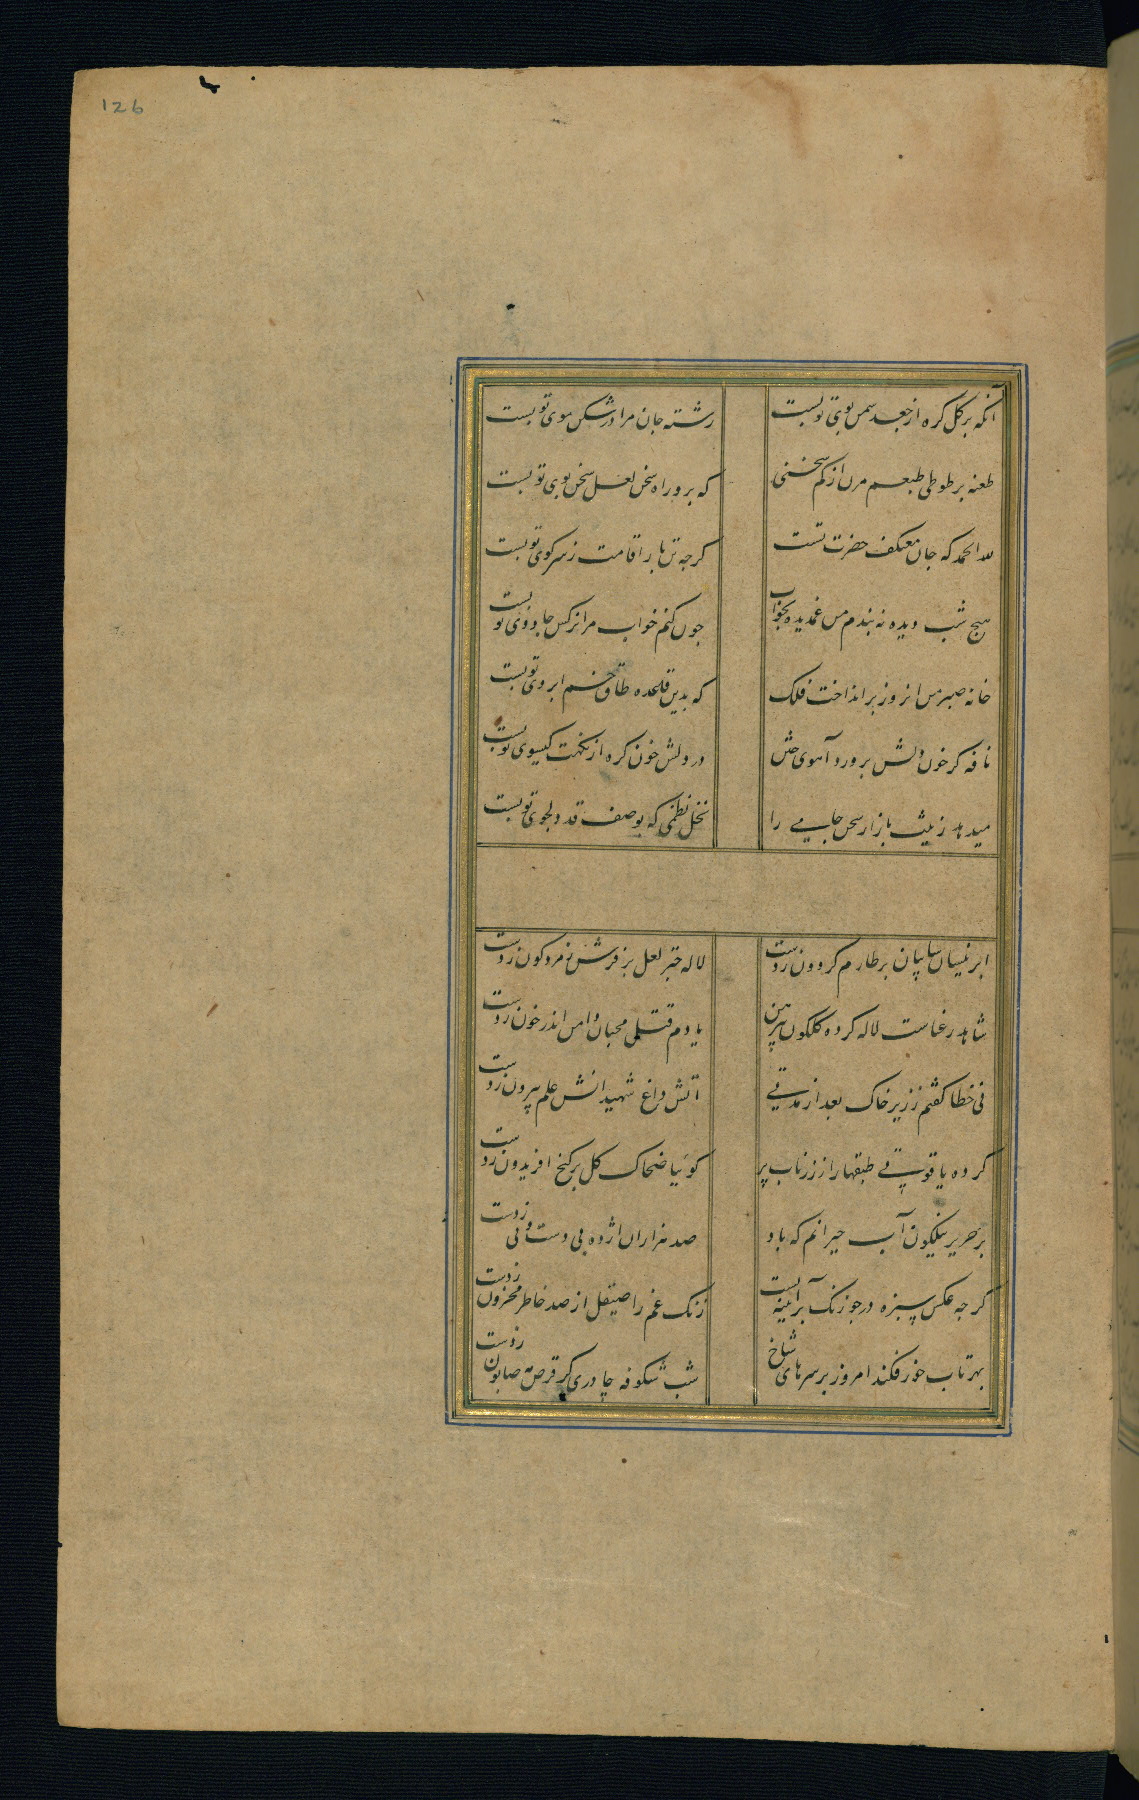 126
آنکه بر کل کره از جعد سمن بوی تو بست رشته جان مرا در شکن موی تو بست
طعنه بر طوطی طبعم مزن از کم سخنی که برو راه سخن لعل سخن کوی تو بست
لله الحمد که جان معتکف حضرت تست کرچه تن بار اقامت ز سر کوی تو بست
هیچ شب دیده نه بندم من غمدیده بخواب چون کنم خواب مرا نرکس جادوی تو بست
خانه صبر من انروز برانداخت فلک که بدین قاعده طاق خم ابروی تو بست
نافه کز خون دلش پرورد آهوی ختن در دلش خون کره از نکهت کیسوی تو بست
میدهد زینت بازار سخن جامی را نخل نظمی که بوصف قد دلجوی تو بست
ابر نیسان سایبان بر طارم کردون زدست لاله چتر لعل بر فرش زمردکون زدست
شاهد رعناست لاله کرده کلکون پیرهن یا دم قتل محبان دامن اندر خون زدست
نی خطا کفتم ز زیر خاک بعد از مدتی آتش داغ شهیدانش علم بیرون زدست
کرده یاقوتی طبقها را ز زر ناب پر کوییا ضحاک کل بر کنج افریدون زدست
بر حریر نیلکون آب حیرانم که باد صد هزاران اژده بی دست و بی زدست
کرچه عکس سبزه در جو زنک بر آیینه بست زنک غم را صیقل از صد خاطر محزون زدست
بهر تاب خور فکند امروز بر سرهای شاخ شب شکوفه چادری کز قرص مه صابون زدست